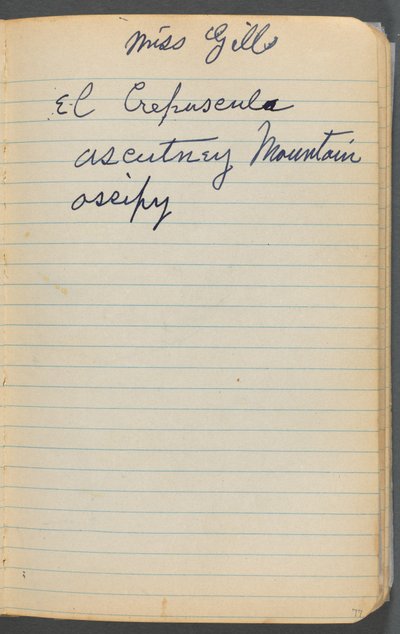 Miss Gills
El Crepuscula
ascutney Mountain
oscipy
77